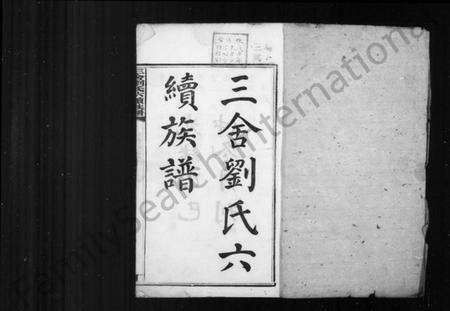 三舍劉氏六
續族譜
FamilySearch International